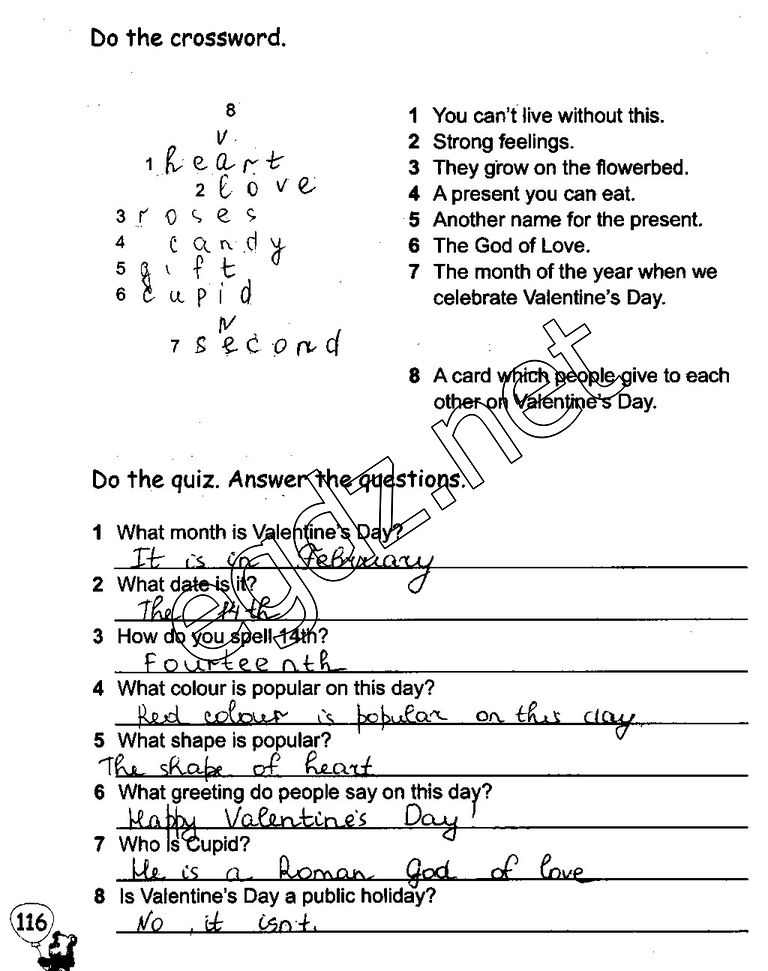 Do the crossword.
8
V
1 heart
2 love
3 roses
4 candy
5 gift
6 cupid
N
7 second
1 You can't live without this.
2 Strong feelings.
3 They grow on the flowerbed.
4 A present you can eat.
5 Another name for the present.
6 The God of Love.
7 The month of the year when we
celebrate Valentine's Day.
8 A card which people give to each
other on Valentine's Day.
Do the quiz. Answer the questions.
1 What month is Valentine's Day?
It is in February
2 What date is it?
The 14th
3 How do you spell 14th?
Fourteenth
4 What colour is popular on this day?
Red colour is popular on this day
5 What shape is popular?
The shape of heart
6 What greeting do people say on this day?
Happy Valentine's Day!
7 Who is Cupid?
He is a Roman God of love
8 Is Valentine's Day a public holiday?
No, it isn't.
116
egdz.net